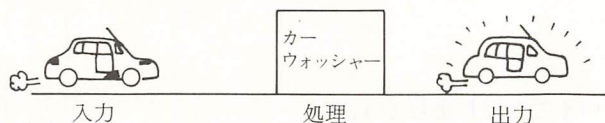 カー
ウォッシャー
入力
処理
出力